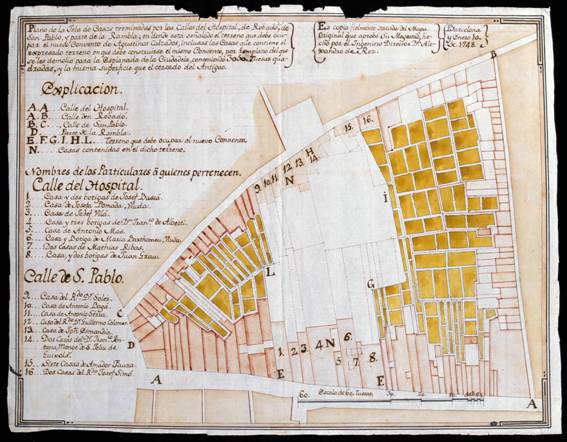 Plano de la Isla de Casas terminadas por las Calles del Hospital, de Robadó, de
San Pablo, y parte de la Rambla; en donde se incluye el terreno que debe ocu-
par el nuevo Convento de Agustinos Calzados, inclusas las Casas que contiene el
expresado terreno en que debe construirse el nuevo Convento, por remplazo del que
se les demolio para la Esplanada de la Ciudadela, conteniendo
y la misma superficie que el cercado del Antiguo.
Es copia fielmente sacada del Mapa
Original que aprobó Su Magestad, he-
cho por el Ingeniero Director Dn. Ale-
xandro de Rez.
Barcelona
y Enero 10.
de 1748.
Explicacion.
A. A. Calle del Hospital.
A. B. Calle den Robadó.
B. C. Calle de San Pablo.
D. Parte de la Rambla.
E. F. G. I. H. L. Terreno que debe ocupar el nuevo Convento.
N. Casas contenidas en el dicho terreno.
Nombres de los Particulares á quienes pertenecen.
Calle del Hospital.
1. Casa y dos botigas de Josef
2. Casa de Josefa Viuda.
3. Casa de Josef Vilá.
4. Casa y tres botigas de Dn. Franco. de Alberti.
5. Casa de Antonio Mas.
6. Casa y Botiga de Maria Viuda.
7. Dos Casas de Mathias Ribas.
8. Casa, y dos botigas de Juan Grau.
Calle de S. Pablo.
9. Casa del Rdo. Dr. Soler.
10. Casa de Antonio
11. Casa de Antonio
12. Casa del Rdo. Dr. Guillermo
13. Casa de Jph.
14. Dos Casas del Dr. Juan
Monge de S. Feliu de
Guixols.
15. Siete Casas de Amador
16. Dos Casas del Rdo. Josef Simó.
B
15. 16.
9. 10. 11. 12. 13. H
14.
N
I
L
G
C
D
1. 2. 3. 4 N 6.
5. 7. 8.
A
E
E
A
60. Escala de 60. Tuesas.